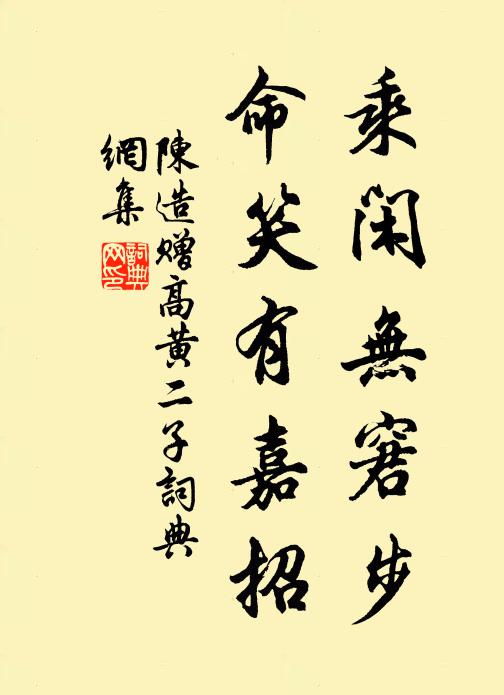 乘閑無窘步
命笑有嘉招
陳造贈高黃二子詞典
網集
詞典
网印